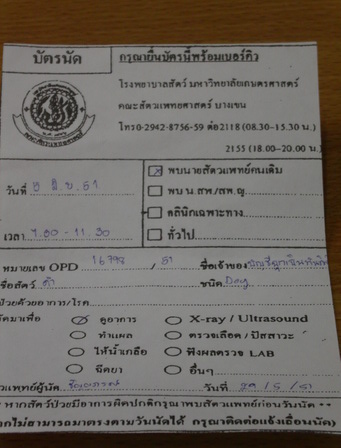 บัตรนัด
กรุณายื่นบัตรนี้พร้อมเบอร์คิว
โรงพยาบาลสัตว์ มหาวิทยาลัยเกษตรศาสตร์
คณะสัตวแพทยศาสตร์ บางเขน
โทร 0-2942-8756-59 ต่อ 2118 (08.30-15.30 น.)
2155 (18.00-20.00 น.)
วันที่ มิ.ย. 51
พบนายสัตวแพทย์คนเดิม
พบ น.สพ./สพ.ญ.
คลินิกเฉพาะทาง
ทั่วไป
เวลา 9.00 - 11.30
หมายเลข OPD 16798 / 51 ชื่อเจ้าของ
ชื่อสัตว์ ดำ ชนิด Dog
ป่วยด้วยอาการ/โรค
นัดมาเพื่อ ดูอาการ X-ray / Ultrasound
ทำแผล ตรวจเลือด / ปัสสาวะ
ให้น้ำเกลือ ฟังผลตรวจ LAB
ฉีดยา อื่นๆ
สัตวแพทย์ผู้นัด วันที่ 29 / 5 / 51
หากสัตว์ป่วยมีอาการผิดปกติกรุณาพบสัตวแพทย์ก่อนวันนัด **
หากไม่สามารถมาตรงตามวันนัดได้ กรุณาติดต่อแจ้งเลื่อนนัด)